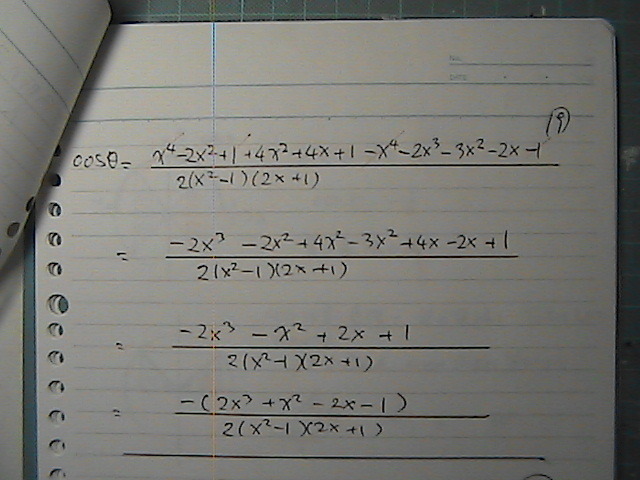 No.
DATE
(9)
cosθ = x⁴-2x²+1+4x²+4x+1-x⁴-2x³-3x²-2x-1
2(x²-1)(2x+1)
= -2x³ -2x²+4x²-3x²+4x-2x+1
2(x²-1)(2x+1)
= -2x³ - x² + 2x + 1
2(x²-1)(2x+1)
= -(2x³ + x² - 2x - 1)
2(x²-1)(2x+1)